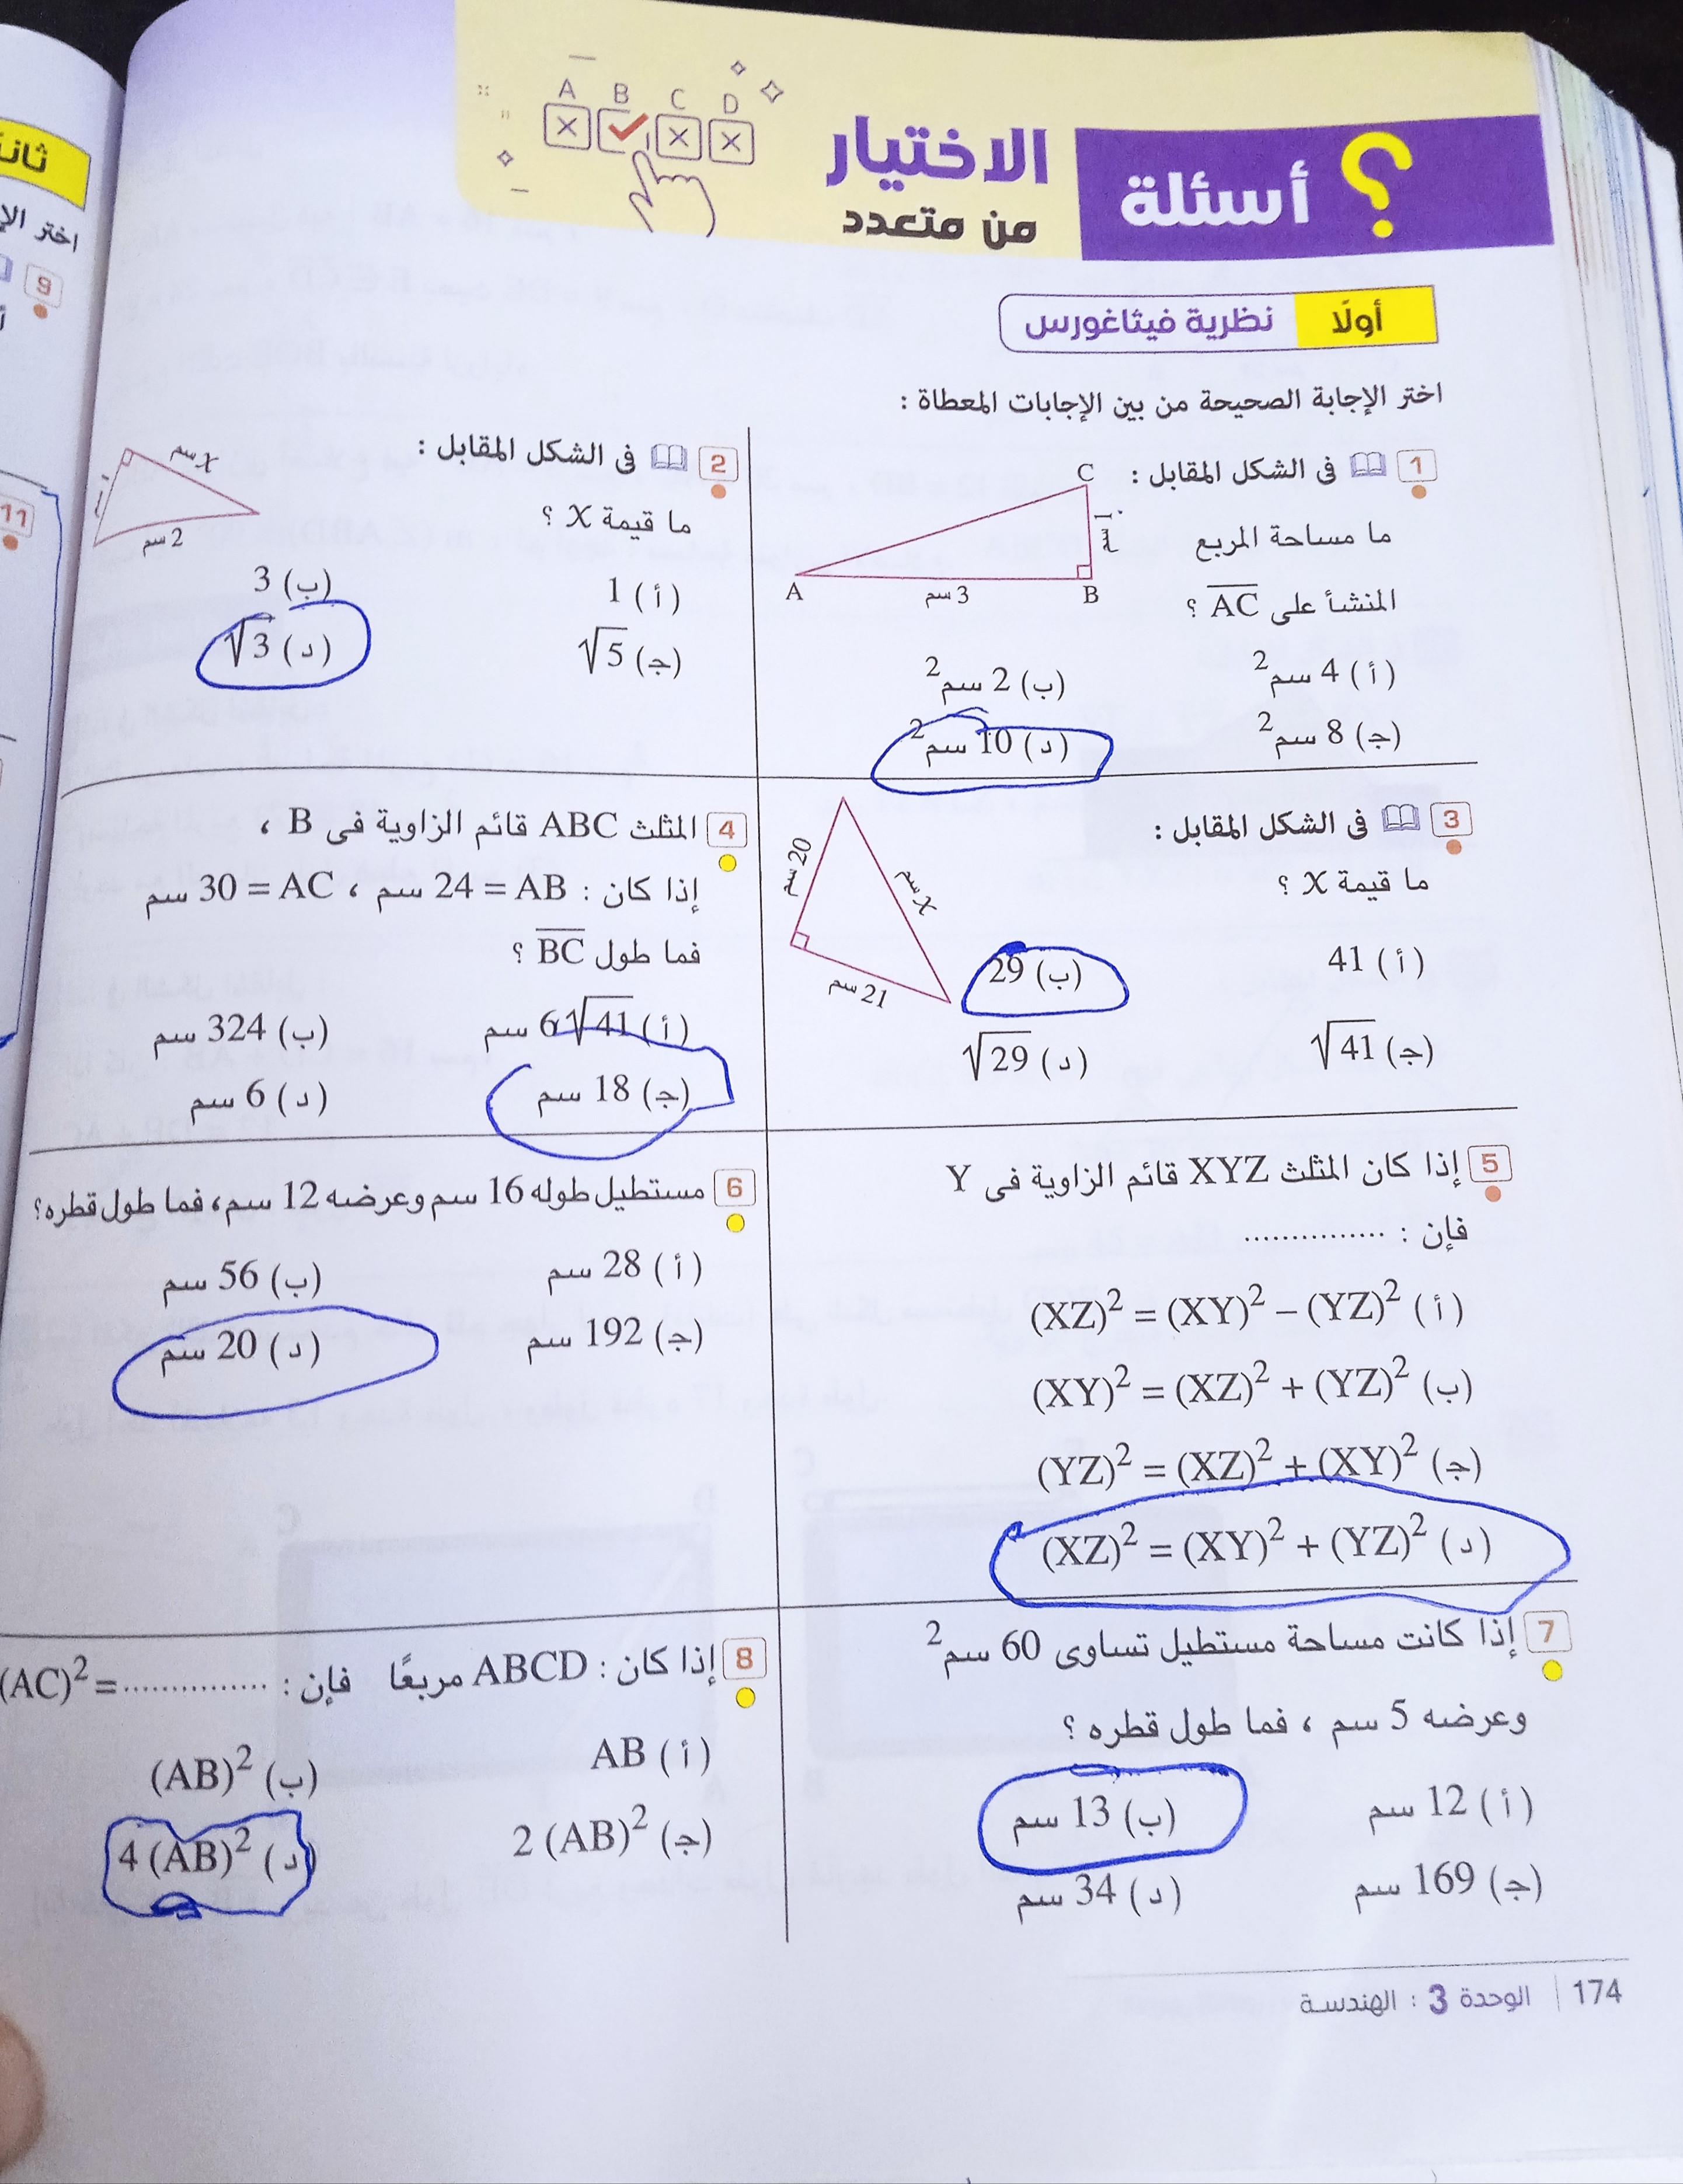 A B C D
أسئلة الاختيار
من متعدد
أولًا نظرية فيثاغورس
اختر الإجابة الصحيحة من بين الإجابات المعطاة :
1 فى الشكل المقابل :
ما مساحة المربع
المنشأ على AC ؟
C
A
B
3 سم
(أ) 4 سم2
(ب) 2 سم2
(ج) 8 سم2
(د) 10 سم2
2 فى الشكل المقابل :
ما قيمة X ؟
X سم
2 سم
(أ) 1
(ب) 3
(ج) √5
(د) √3
3 فى الشكل المقابل :
ما قيمة X ؟
20 سم
X سم
21 سم
(أ) 41
(ب) 29
(ج) √41
(د) √29
4 المثلث ABC قائم الزاوية فى B ،
إذا كان : AB = 24 سم ، AC = 30 سم
فما طول BC ؟
(أ) 6√41 سم
(ب) 324 سم
(ج) 18 سم
(د) 6 سم
5 إذا كان المثلث XYZ قائم الزاوية فى Y
فإن : ...............
(أ) (XZ)2 = (XY)2 – (YZ)2
(ب) (XY)2 = (XZ)2 + (YZ)2
(ج) (YZ)2 = (XZ)2 + (XY)2
(د) (XZ)2 = (XY)2 + (YZ)2
6 مستطيل طوله 16 سم وعرضه 12 سم، فما طول قطره؟
(أ) 28 سم
(ب) 56 سم
(ج) 192 سم
(د) 20 سم
7 إذا كانت مساحة مستطيل تساوى 60 سم2
وعرضه 5 سم ، فما طول قطره ؟
(أ) 12 سم
(ب) 13 سم
(ج) 169 سم
(د) 34 سم
8 إذا كان : ABCD مربعًا فإن : (AC)2 = ...............
(أ) AB
(ب) (AB)2
(ج) 2 (AB)2
(د) 4 (AB)2
174 | الوحدة 3 : الهندسة
اختر
9
11